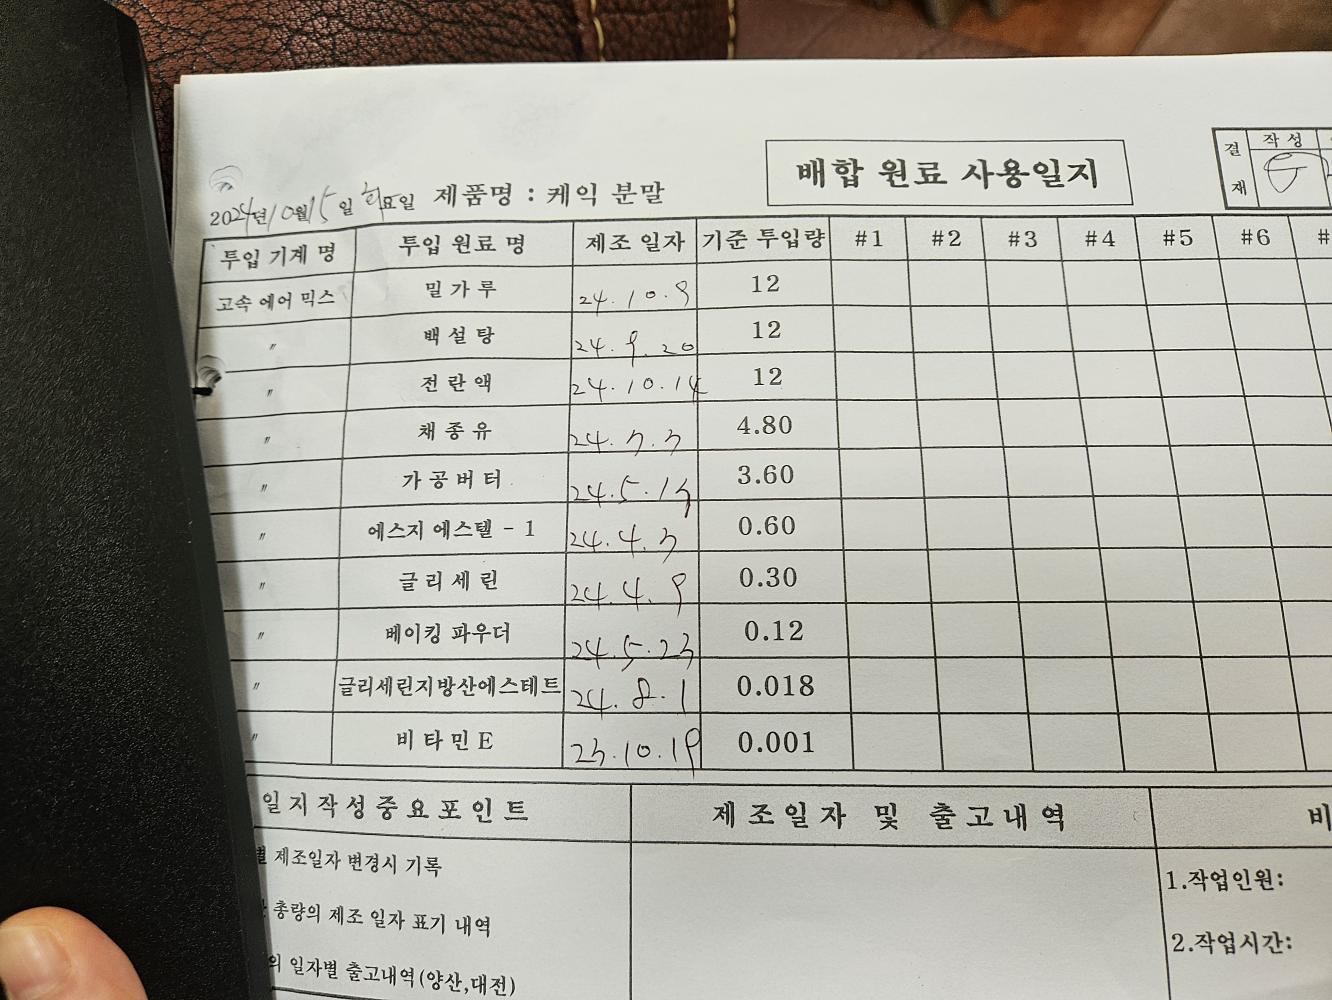 배합 원료 사용일지
결재 작성
2024년 10월 15일 화요일 제품명 : 케익 분말
투입 기계 명 투입 원료 명 제조 일자 기준 투입량 #1 #2 #3 #4 #5 #6 #
고속 에어 믹스 밀가루 24.10.9 12
〃 백설탕 24.9.20 12
〃 전란액 24.10.14 12
〃 채종유 24.7.3 4.80
〃 가공버터 24.5.13 3.60
〃 에스지 에스텔 - 1 24.4.3 0.60
〃 글리세린 24.4.9 0.30
〃 베이킹 파우더 24.5.23 0.12
〃 글리세린지방산에스테트 24.8.1 0.018
〃 비타민E 23.10.19 0.001
일지작성중요포인트 제조일자 및 출고내역 비
제조일자 변경시 기록
총량의 제조 일자 표기 내역
의 일자별 출고내역(양산,대전)
1.작업인원:
2.작업시간: